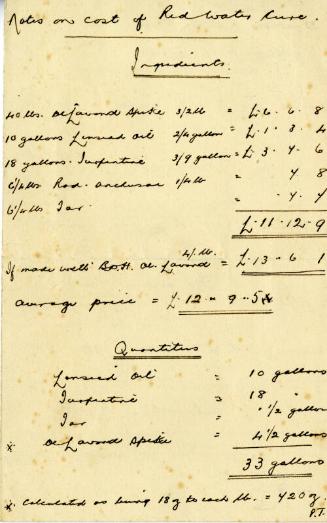 Notes on cost of Red Water Cure.
Ingredients.
40 lbs. Ol Lavand Spike 3/2 lb = £. 6. 6. 8
10 gallons Linseed Oil 2/4 gallon = £. 1. 3. 4
18 gallons. Turpentine 3/9 gallon = £. 3. 7. 6
6 1/4 lbs Rad. Anchusae 1/4 lb = 4. 8
6 1/4 lbs Tar. = 4. 4
£. 11. 12. 9
If made with B.H. Ol. Lavand 4/. lb. = £. 13. 6 1
average price = £. 12 . 9 . 5
Quantities
Linseed Oil = 10 gallons
Turpentine = 18 "
Tar = 1/2 gallon
x Ol Lavand Spike = 4 1/2 gallons
33 gallons
x. Calculated as being 18 g to each lb. = 720 g.
P.T.